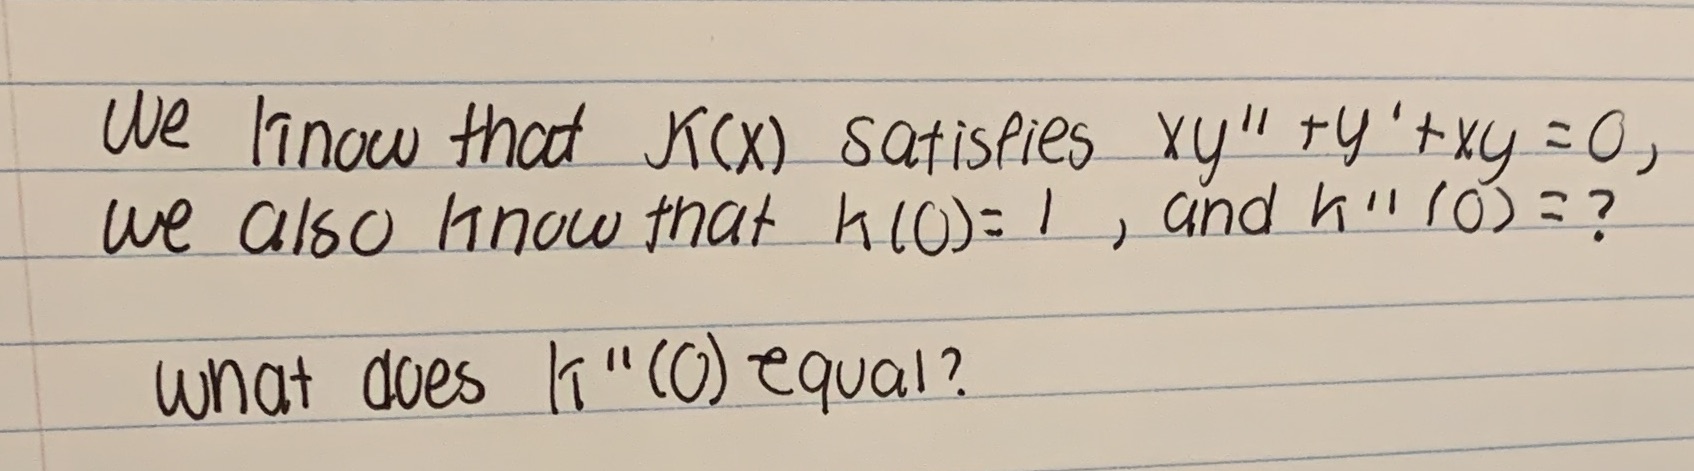 We know that K(x) satisfies xy" + y' + xy = 0,
we also know that k(0) = 1 , and k" (0) = ?
what does k"(0) equal?